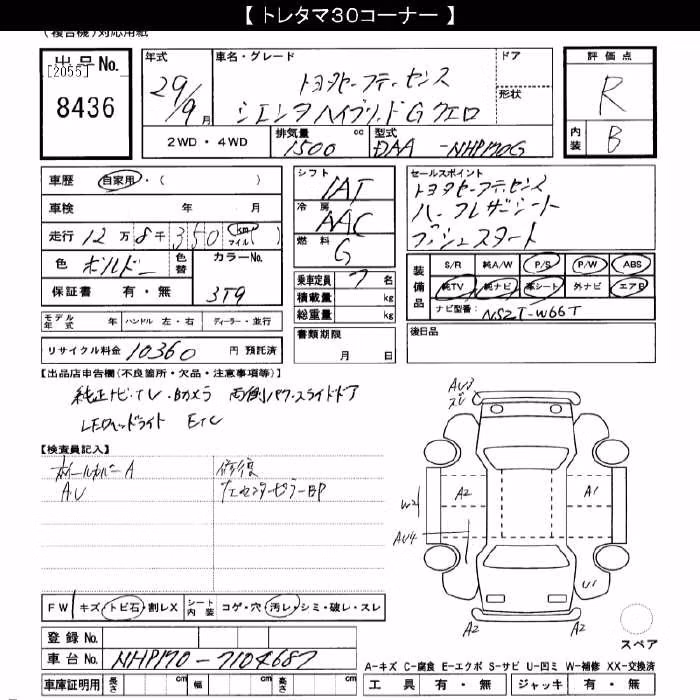 【 トレタマ30コーナー 】
(複合機)対応用紙
出品No.
[2055]
8436
年式
29/9月
車名・グレード
トヨタセーフティーセンス
シエンタハイブリッドG クエロ
ドア
形状
2WD・4WD
排気量
1500 cc
型式
DAA -NHP170G
評価点
R
内装
B
車歴 自家用・( )
車検 年 月
走行 12万8千350 (km マイル)( )
色 ボルドー 色替 カラーNo. 3T9
保証書 有・無
モデル年式 年 ハンドル 左・右 ディーラー・並行
リサイクル料金 10360 円 預託済
シフト
IAT
冷房
AAC
燃料
G
乗車定員 7 名
積載量 kg
総重量 kg
書類期限
月 日
セールスポイント
トヨタセーフティセンス
ハーフレザーシート
プッシュスタート
装備品
S/R 純A/W P/S P/W ABS
純TV 純ナビ 革シート 外ナビ エアB
ナビ型番: NSZT-W66T
後日品
【出品店申告欄(不良箇所・欠品・注意事項等)】
純正ナビ・TV・Bカメラ 両側パワースライドドア
LEDヘッドライト ETC
【検査員記入】
ホイールカバーA
AU
修復
センターピラーBP
AU3
A2
A1
W2
AU4
U1
A2
A2
スペア
FW キズ・トビ石・割レX シート内装 コゲ・穴・汚レ・シミ・破レ・スレ
登録No.
車台No. NHP170-7104687
車庫証明用 長さ cm 幅 cm 高さ cm
A-キズ C-腐食 E-エクボ S-サビ U-凹ミ W-補修 XX-交換済
工具 有・無 ジャッキ 有・無